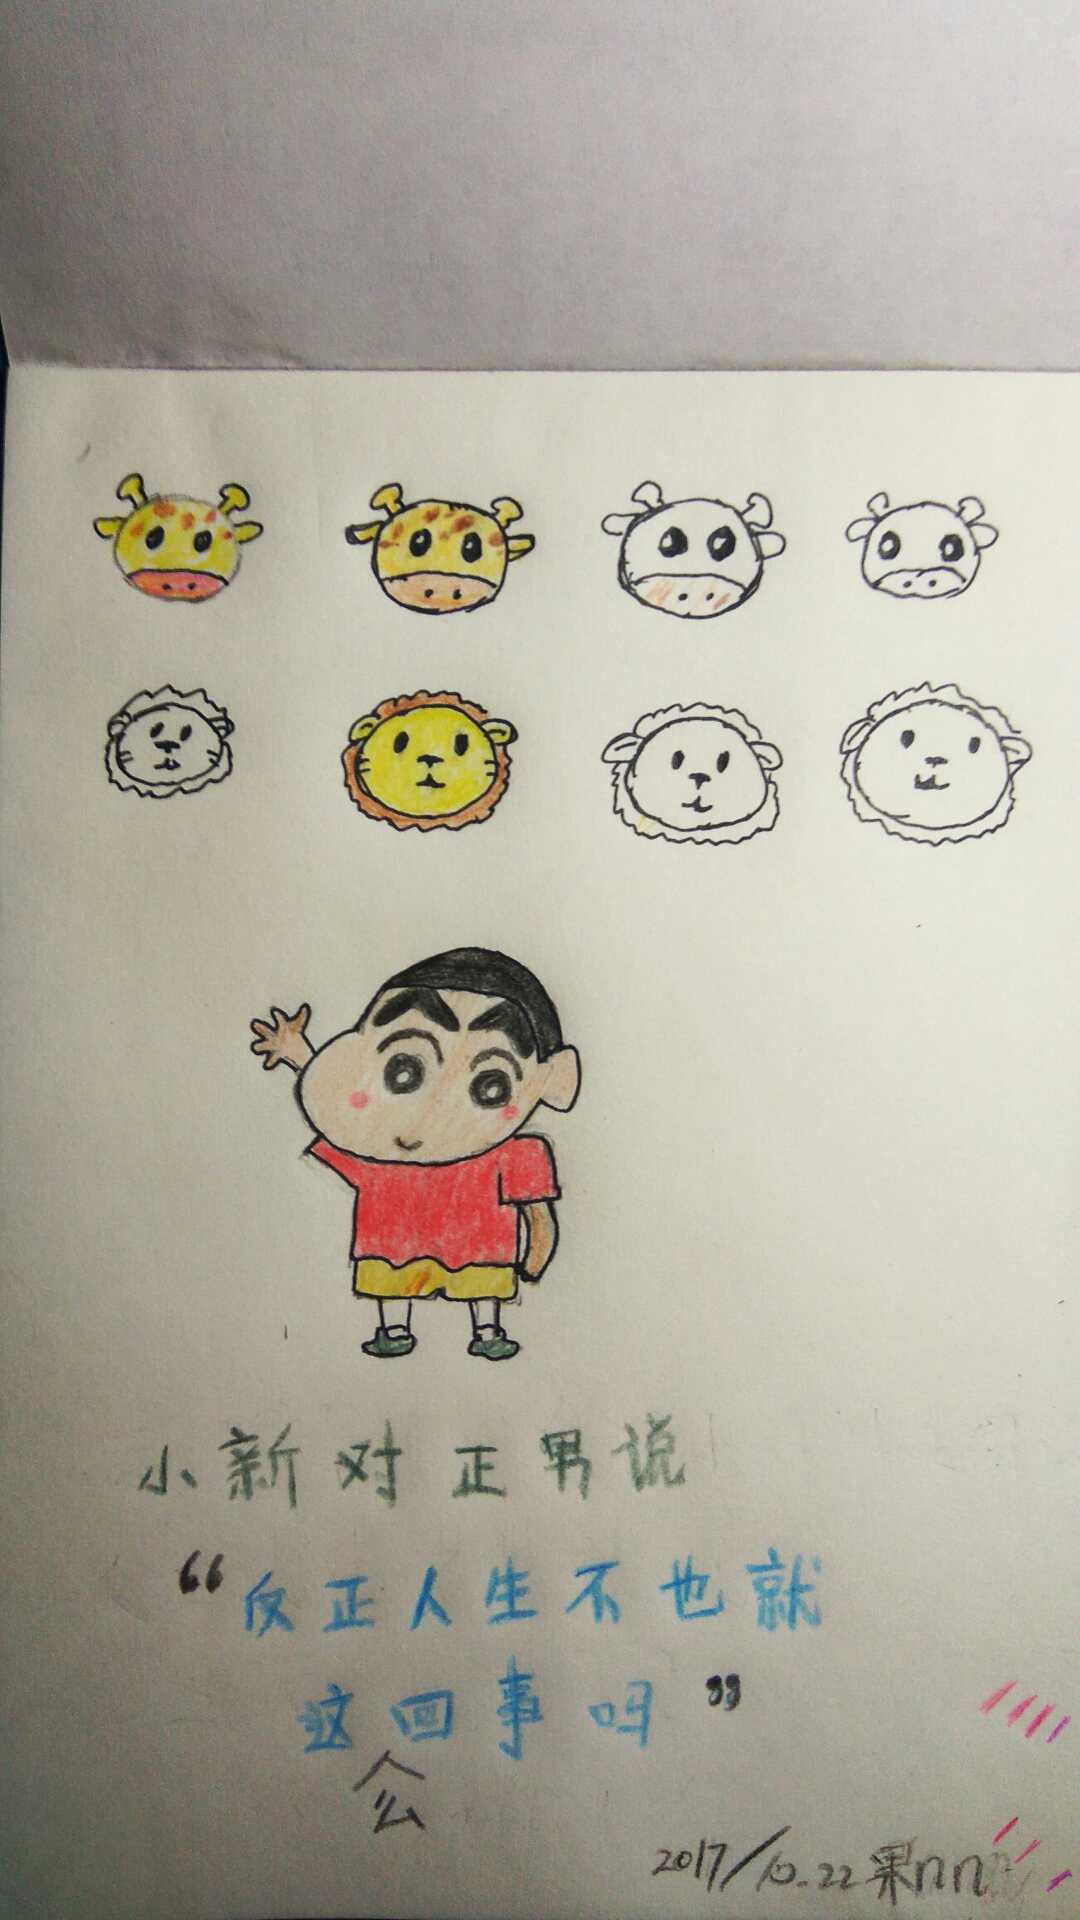 小新对正男说
“反正人生不也就
这么回事吗”
2017/10.22果nn